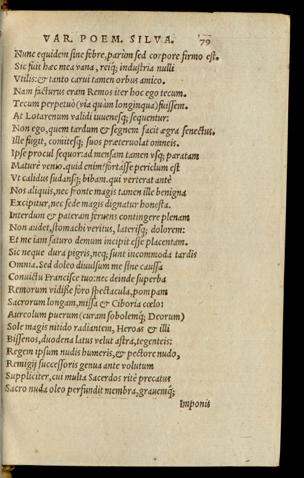 VAR. POEM. SILVA. 79
Nunc equidem sine febre, parùm sed corpore firmo est.
Sic fuit hæc mea vana, reiq; industria nulli
Vtilis: & tanto carui tamen orbus amico.
Nam facturus eram Remos iter hoc ego tecum.
Tecum perpetuò (via quàm longinqua) fuissem.
At Lotarenum validi iuuenesq; sequentur:
Non ego, quem tardum & segnem facit ægra senectus.
Ille fugit, comitesq; suos præteruolat omneis.
Ipse procul sequor: ad mensam tamen vsq; paratam
Maturè venio. quid enim? fortasse periclum est
Vt calidus sudansq; bibam. qui verterat antè
Nos aliquis, nec fronte magis tamen ille benigna
Excipitur, nec sede magis dignatur honesta.
Interdum & pateram feruens contingere plenam
Non audet, stomachi veritus, laterisq; dolorem:
Et me iam saturo demum incipit esse placentam.
Sic neque dura pigris, neq; sunt incommoda tardis
Omnia. Sed doleo diuulsum me sine caussa
Conuictu Francisce tuo: nec deinde superba
Remorum vidisse foro spectacula, pompam
Sacrorum longam, missa & Ciboria cœlo:
Aureolum puerum (curam sobolemq; Deorum)
Sole magis nitido radiantem, Heroas & illi
Bissenos, duodena latus velut astra, tegenteis:
Regem ipsum nudis humeris, & pectore nudo,
Remigij successoris genua ante volutum
Suppliciter, cui multa Sacerdos ritè precatus
Sacro nuda oleo perfundit membra, grauemq;
Imponis